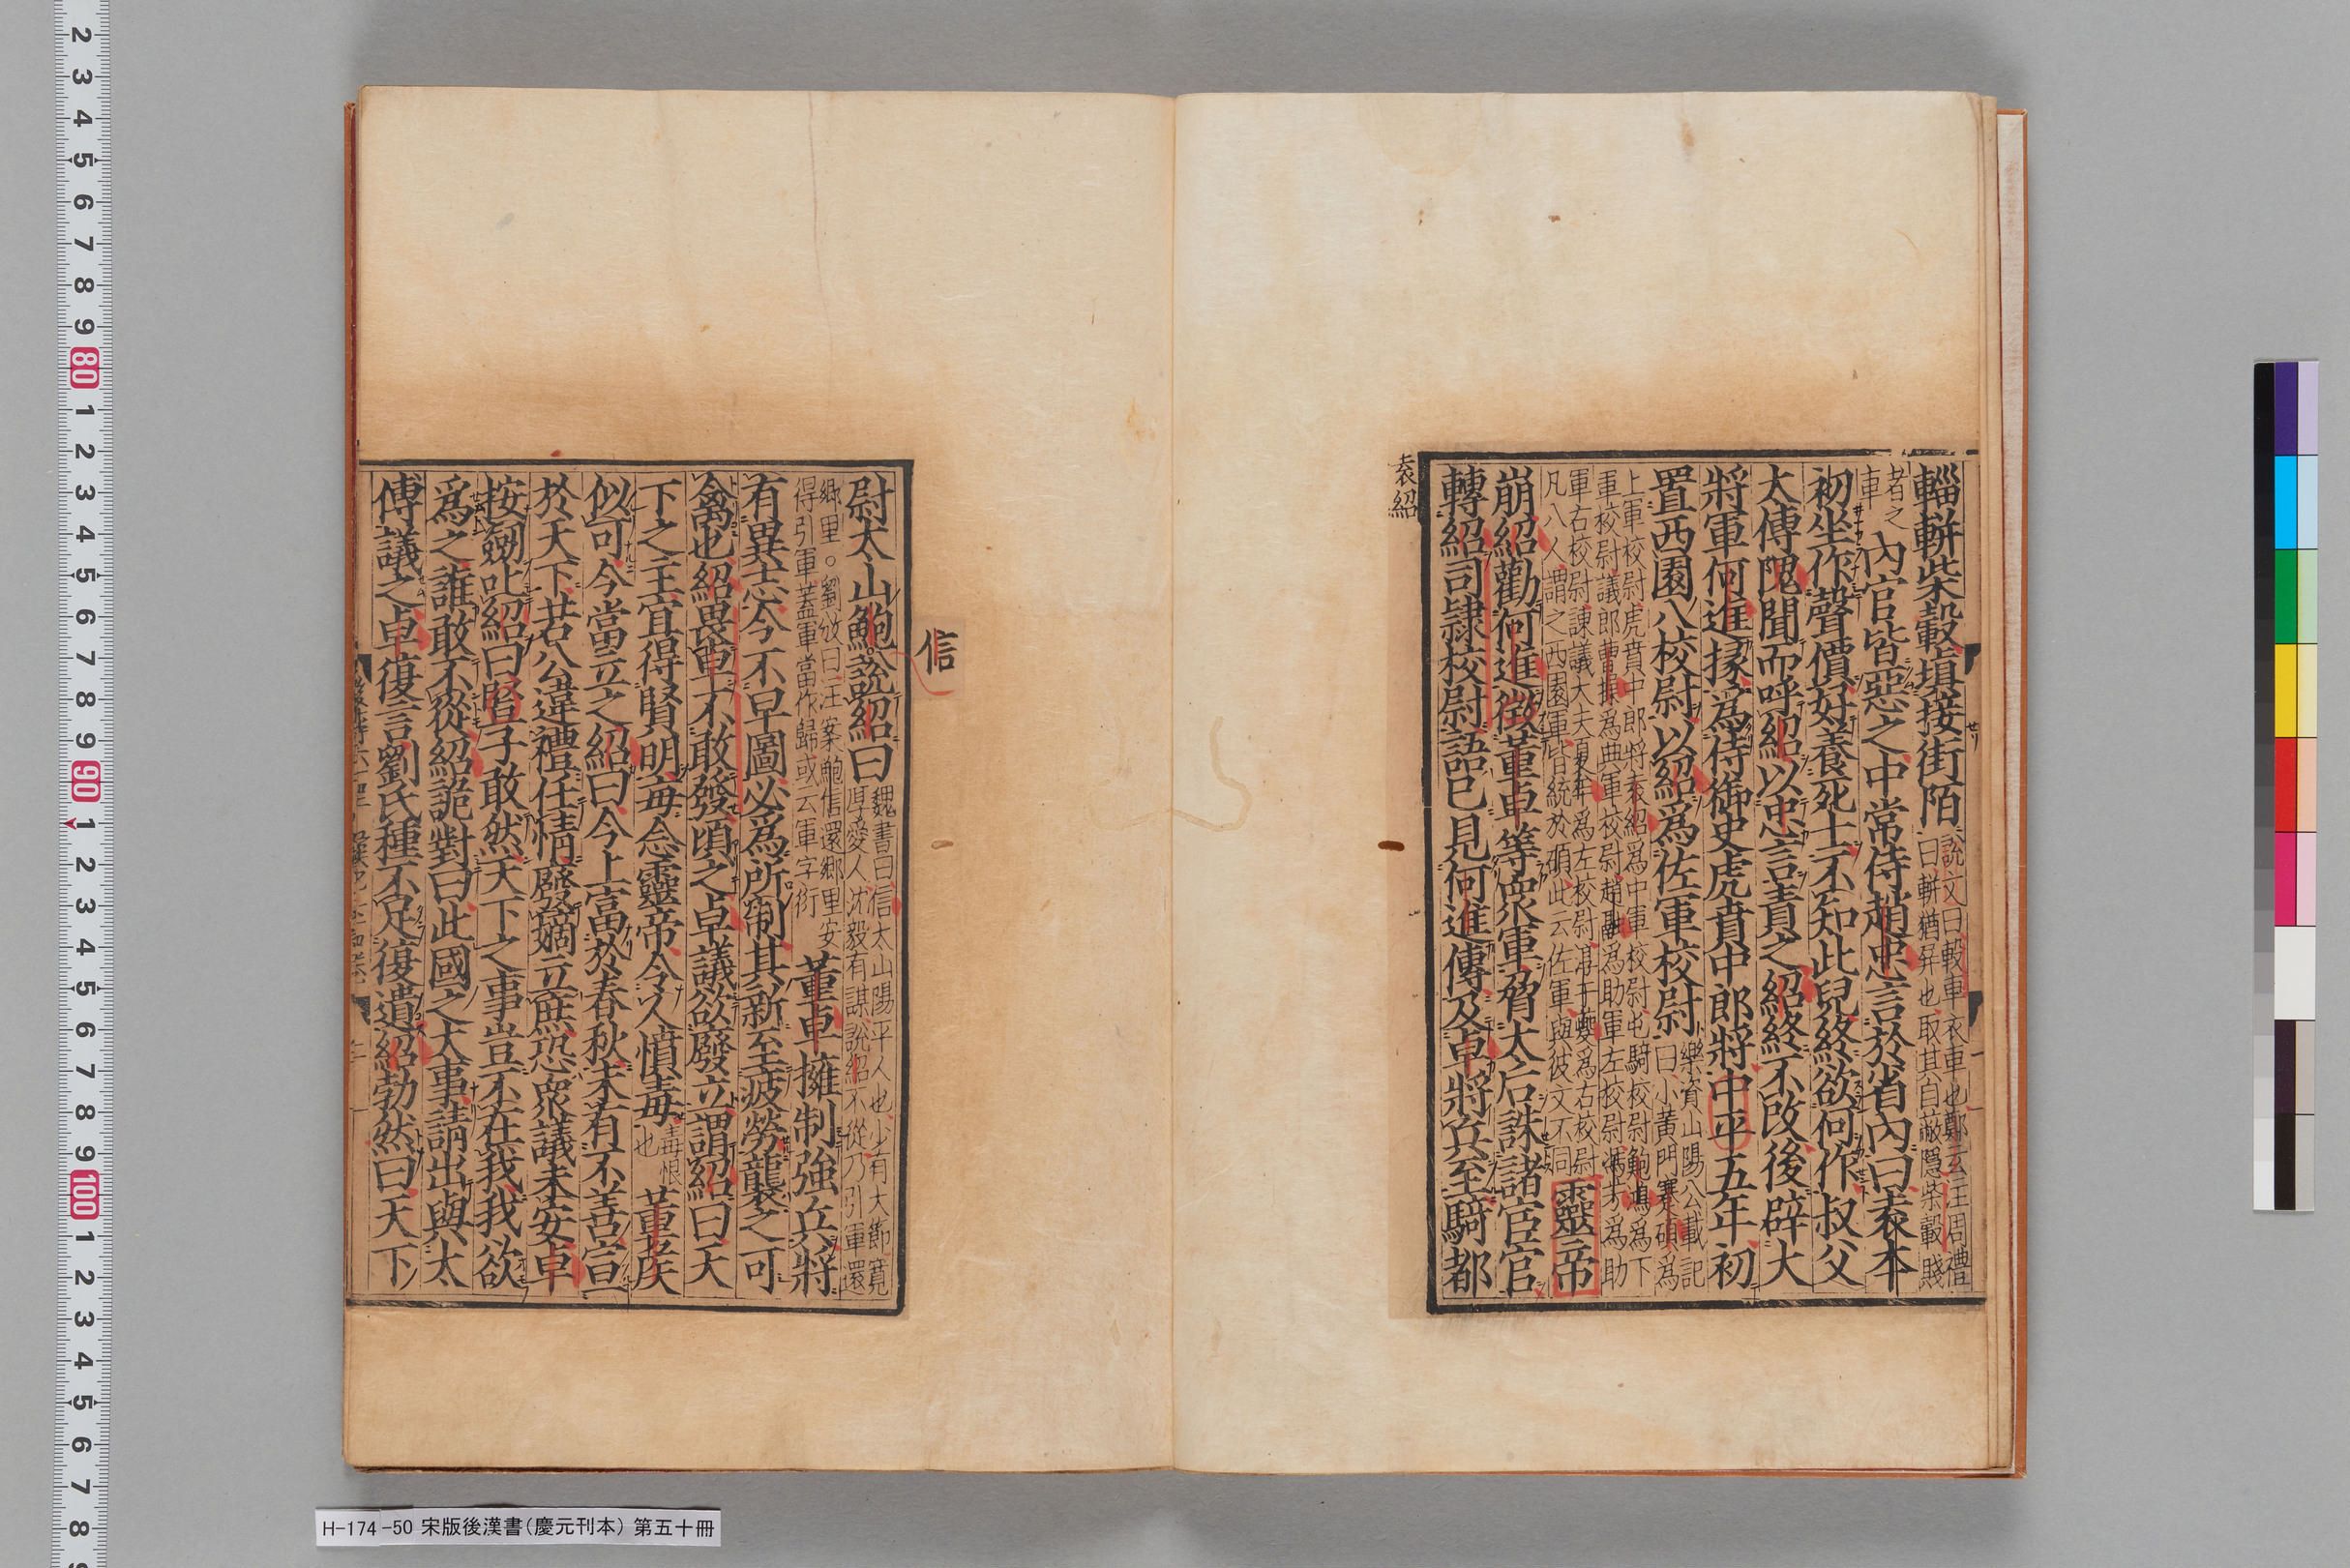 輜軿柴轂塡接街陌
說文曰輜車衣車也鄭玄注周禮
曰軿猶屛也取其自蔽隱柴轂賤
者之
車
內官皆惡之中常侍趙忠言於省內曰袁本
初坐作聲價好養死士不知此兒終欲何作叔父
太傅隗聞而呼紹以忠言責之紹終不改後辟大
將軍何進掾爲侍御史虎賁中郎將中平五年初
置西園八校尉以紹爲佐軍校尉
樂資山陽公載記
曰小黃門蹇碩爲
上軍校尉虎賁中郎將袁紹爲中軍校尉屯騎校尉鮑鴻爲下
軍校尉議郎曹操爲典軍校尉趙融爲助軍左校尉馮芳爲助
軍右校尉諫議大夫夏牟爲左校尉淳于瓊爲右校尉
凡八人謂之西園軍皆統於碩此云佐軍與彼文不同
靈帝
崩紹勸何進徵董卓等衆軍脅太后誅諸宦官
轉紹司隸校尉語已見何進傳及卓將兵至騎都
袁紹
尉太山鮑說紹曰
信
魏書曰信太山陽平人也少有大節寬
厚愛人沈毅有謀說紹不從乃引軍還
鄉里○劉攽曰注案鮑信還鄉里安
得引軍蓋軍當作歸或云軍字衍
董卓擁制強兵將
有異志今不早圖必爲所制其新至疲勞襲之可
禽也紹畏卓不敢發頃之卓議欲廢立謂紹曰天
下之主宜得賢明每念靈帝令人憤毒
毒恨
也
董侯
似可今當立之紹曰今上富於春秋未有不善宣
於天下若公違禮任情廢嫡立庶恐衆議未安卓
按劒叱紹曰竪子敢然天下之事豈不在我我欲
爲之誰敢不從紹詭對曰此國之大事請出與太
傅議之卓復言劉氏種不足復遺紹勃然曰天下
H-174-50 宋版後漢書(慶元刊本) 第五十冊